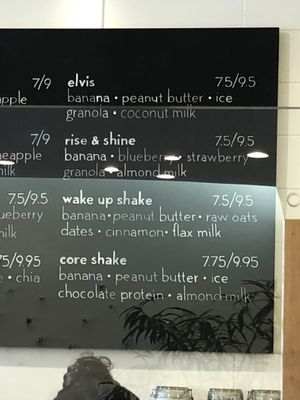 7/9
apple
7/9
neapple
7.5/9.5
ueberry
milk
75/9.95
chia
elvis 7.5/9.5
banana • peanut butter • ice
granola • coconut milk
rise & shine 7.5/9.5
banana • blueberry • strawberry
granola • almond milk
wake up shake 7.5/9.5
banana • peanut butter • raw oats
dates • cinnamon • flax milk
core shake 7.75/9.95
banana • peanut butter • ice
chocolate protein • almond milk